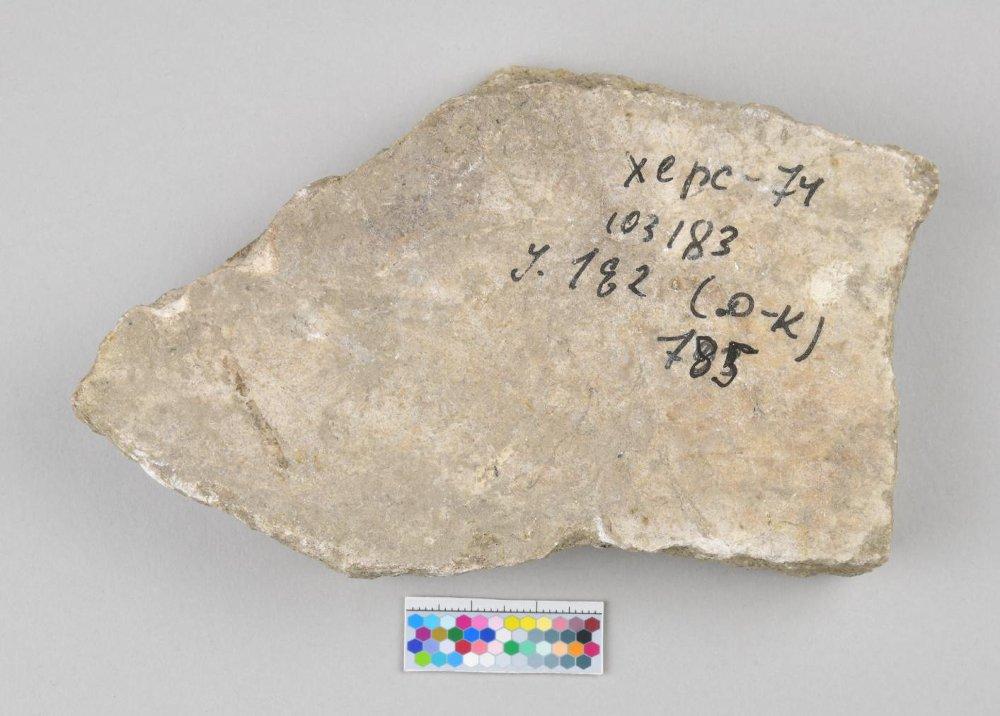 Херс-74
103183
У. 182 (Ю-К)
785